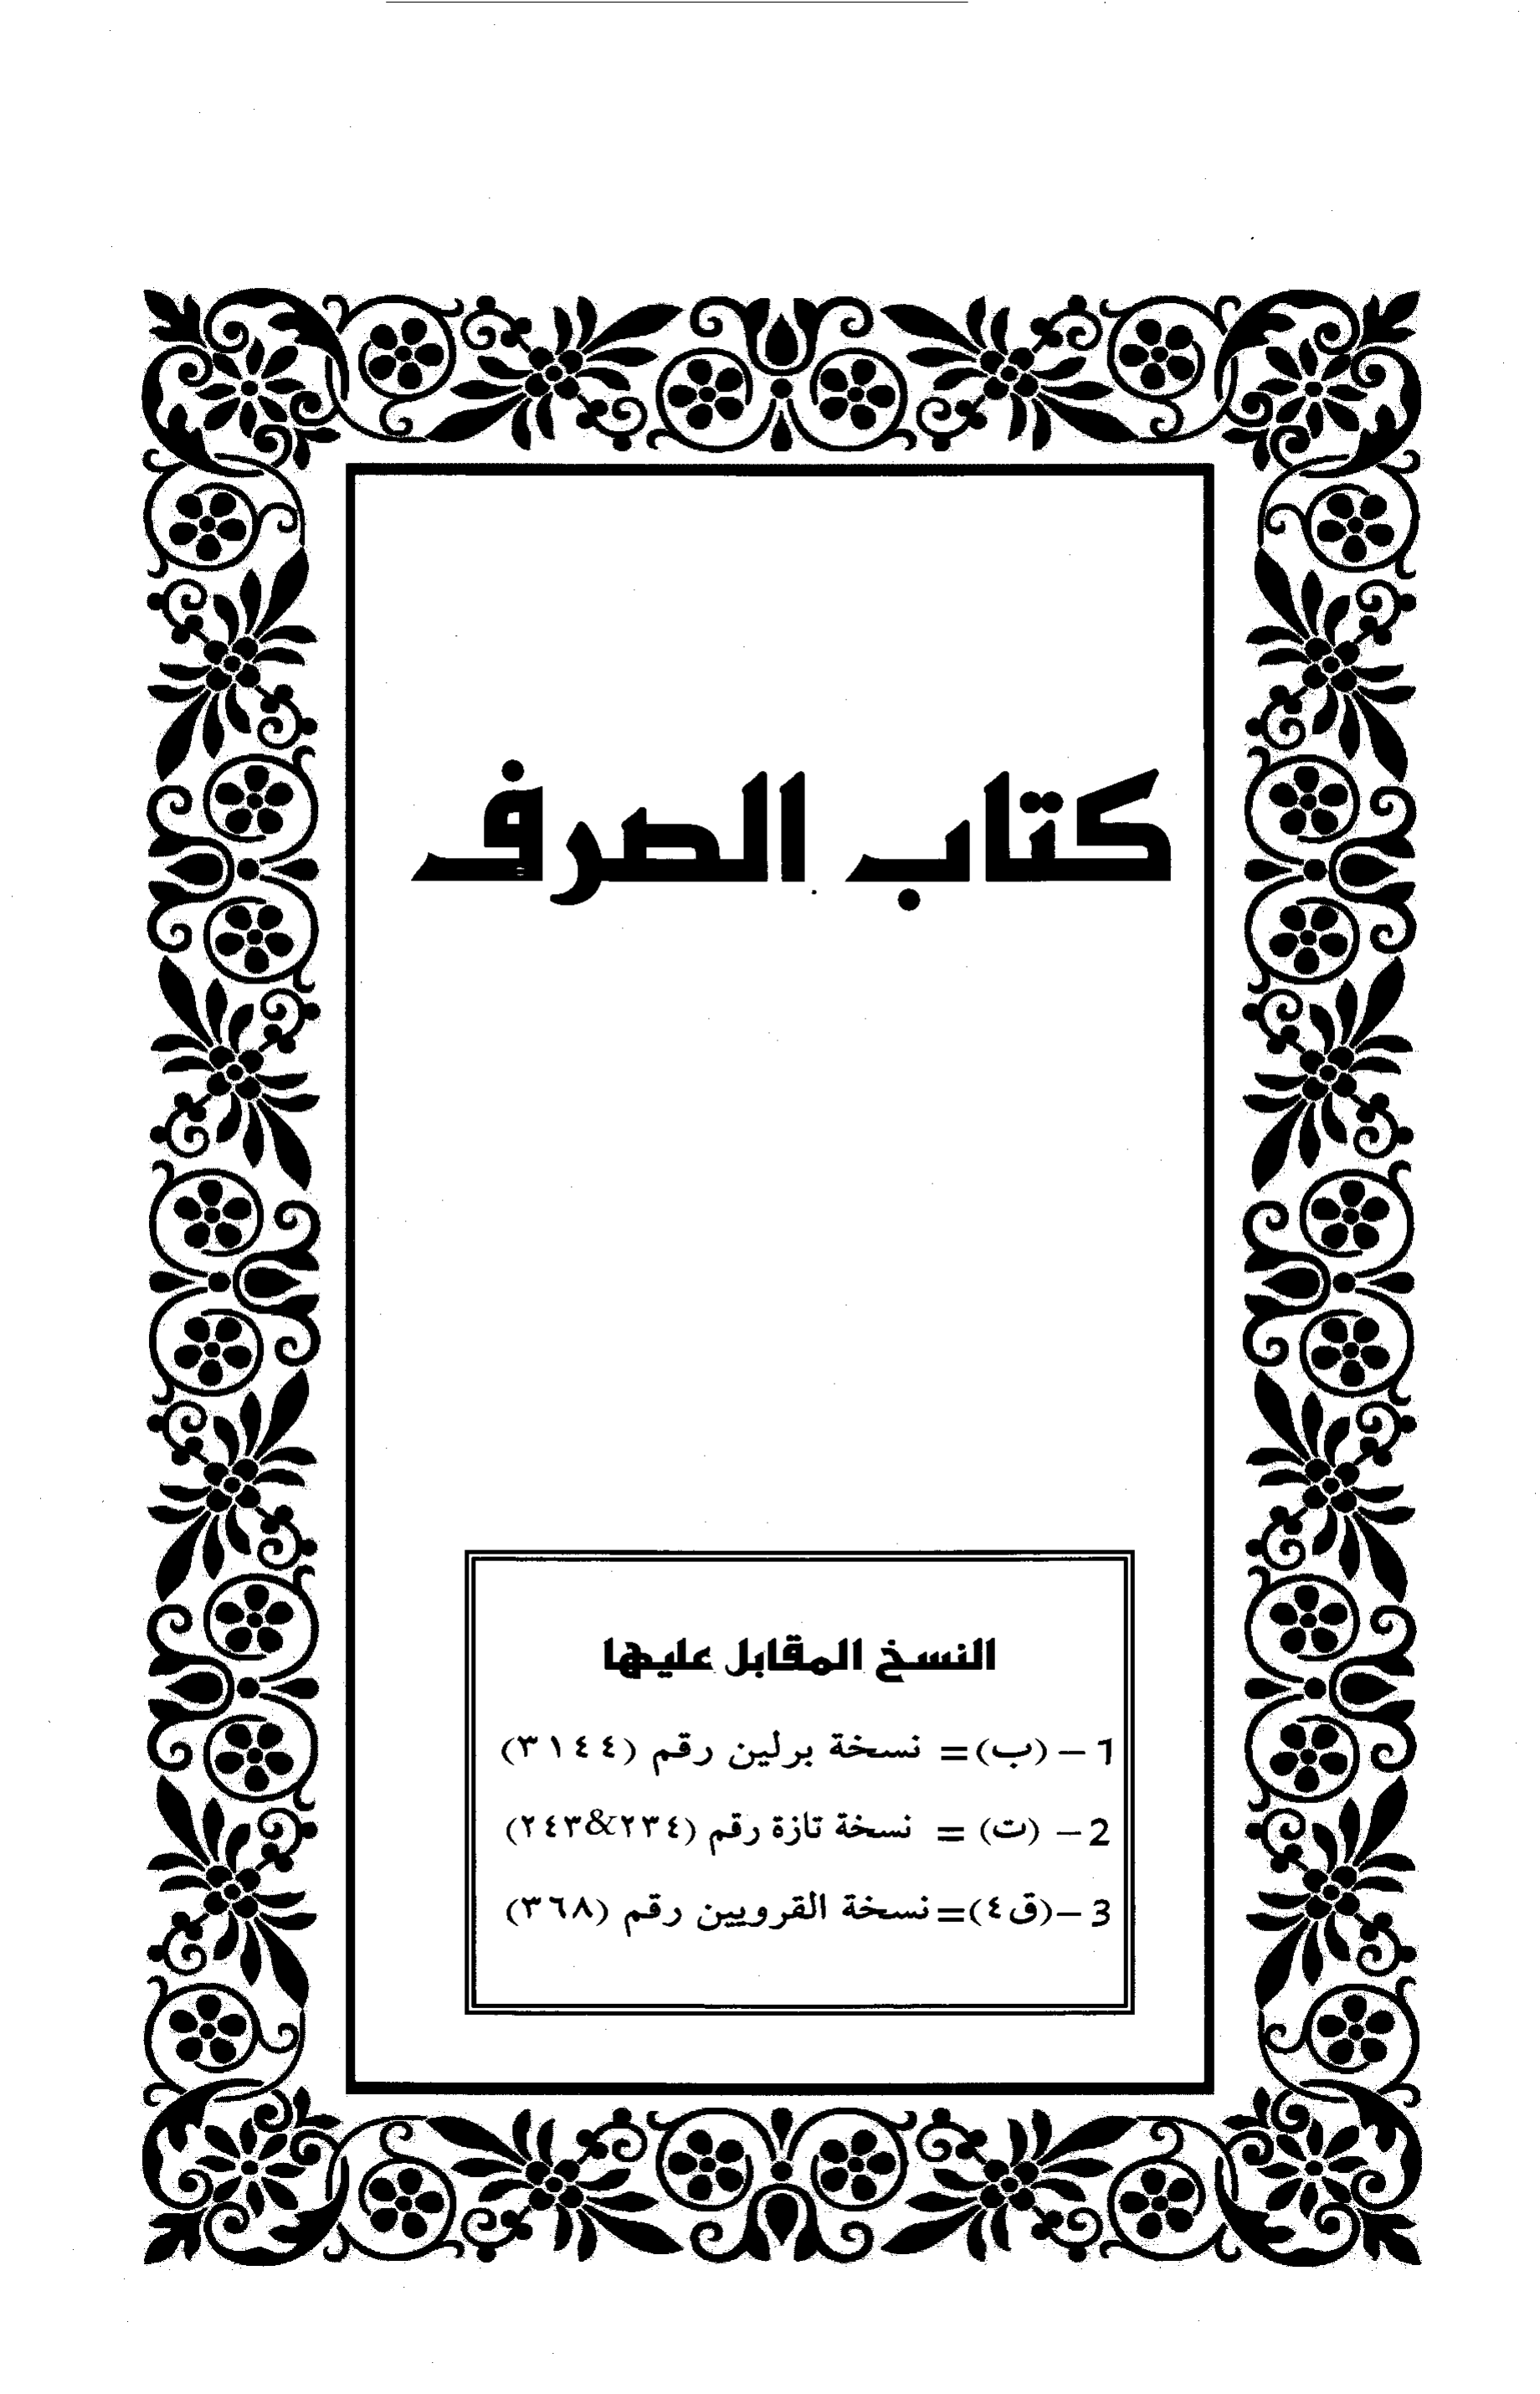 كتاب الصرف
النسخ المقابل عليها
1 - (ب)= نسخة برلين رقم (٣١٤٤)
2 - (ت) = نسخة تازة رقم (٢٣٤&٢٤٣)
3 -(ق٤)= نسخة القرويين رقم (٣٦٨)